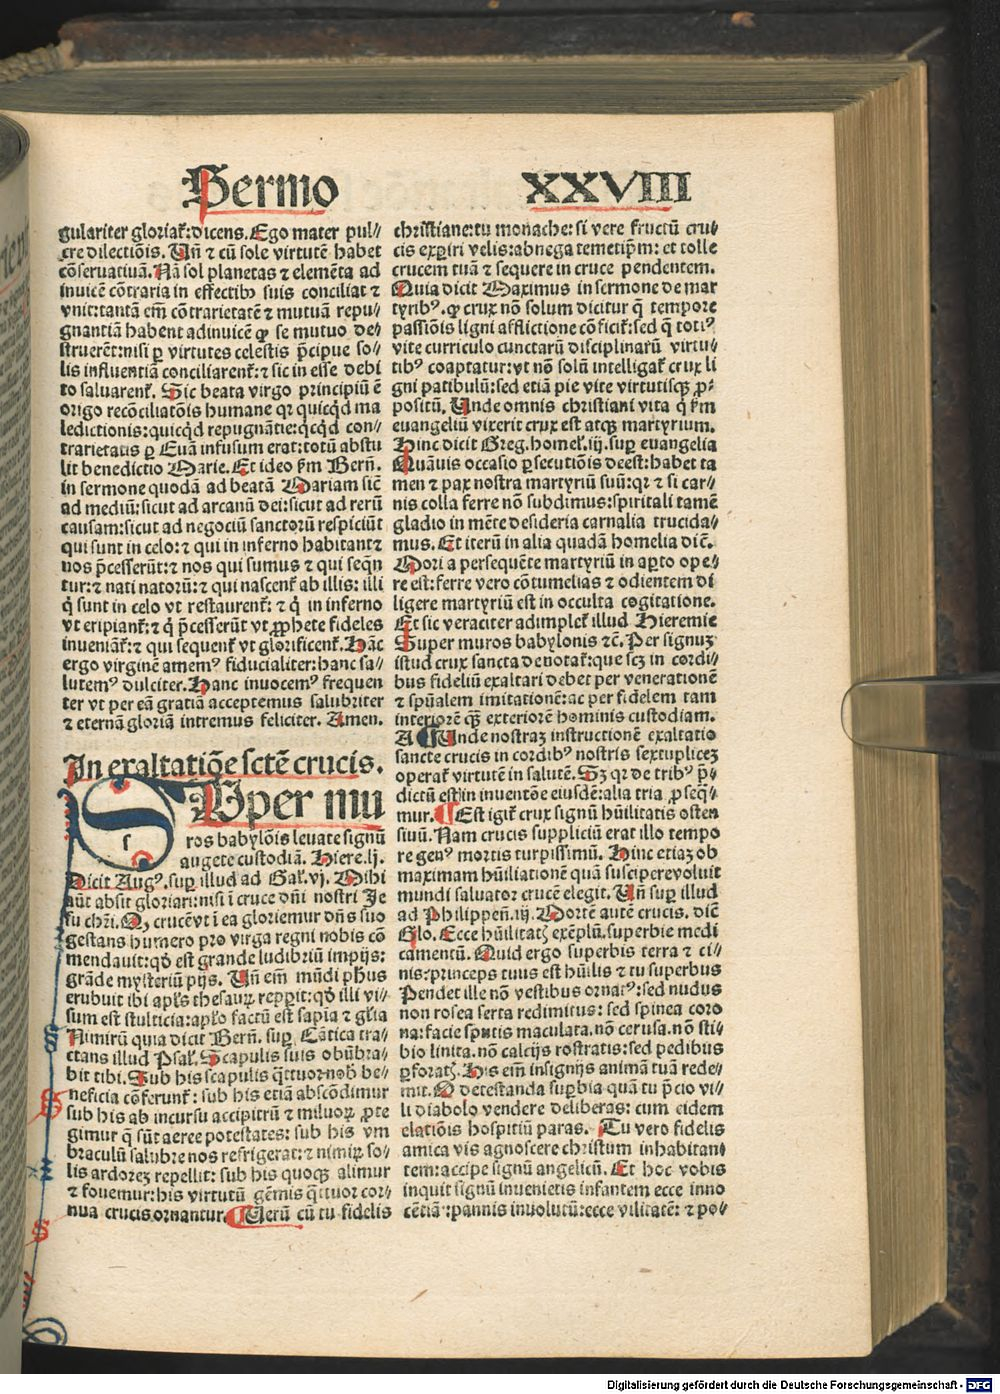 Sermo XXVIII
gulariter gloriat̃:dicens. Ego mater pul⸗
cre dilectiõis. Uñ ⁊ cũ sole virtutẽ habet
cõseruatiuã. Nã sol planetas ⁊ elemẽta ad
inuicẽ cõtraria in effectibꝰ suis conciliat ⁊
vnit:tantã em̃ cõtrarietatẽ ⁊ mutuã repu⸗
gnantiã habent adinuicẽ ꝙ se mutuo de⸗
struerẽt:nisi ꝑ virtutes celestis p̃cipue so⸗
lis influentiã conciliarent̃:⁊ sic in esse debi
to saluarent̃. Sic beata virgo principiũ ẽ
origo recõciliatõis humane qꝛ quicq̃d ma
ledictionis:quicq̃d repugnãtie:qcq̃d con⸗
trarietatis ꝑ Euã infusum erat:totũ abstu
lit benedictio Marie. Et ideo s̃m Berñ.
in sermone quodã ad beatã Mariam sic̃
ad mediũ:sicut ad arcanũ dei:sicut ad rerũ
causam:sicut ad negociũ sanctorũ respiciũt
qui sunt in celo:⁊ qui in inferno habitant⁊
nos p̃cesserũt:⁊ nos qui sumus ⁊ qui seqñ
tur:⁊ nati natorũ:⁊ qui nascent̃ ab illis: illi
q̃ sunt in celo vt restaurent̃: ⁊ q̃ in inferno
vt eripiant̃:⁊ q̃ p̃cesserũt vt ꝓphete fideles
inueniãt̃:⁊ qui sequent̃ vt glorificent̃. Hãc
ergo virginẽ amemꝰ fiducialiter:hanc sa⸗
lutemꝰ dulciter. Hanc inuocemꝰ frequen
ter vt per eã gratiã acceptemus salubriter
⁊ eternã gloriã intremus feliciter. Amen.
In exaltatiõe sctẽ crucis.
SUper mu
s
ros babylõis leuate signũ
augete custodiã. Hiere.lj.
Dicit Augꝰ.suꝑ illud ad Gal̃.vj. Mihi
aũt absit gloriari:nisi ĩ cruce dñi nostri Je
su chr̃i. O, crucẽ vt ĩ ea gloriemur dñs suo
gestans humero pro virga regni nobis cõ
mendauit:qd̃ est grande ludibriũ impijs:
grãde mysteriũ pijs. Uñ em̃ mũdi ph̃us
erubuit ibi apl̃s thesauꝝ reꝑꝑit:qd̃ illi vi⸗
sum est stulticia:apl̃o factũ est sapĩa ⁊ gl̃ia
Nimirũ quia dicit Berñ. suꝑ Cãtica tra⸗
ctans illud Psal̃. Scapulis suis obũbra⸗
bit tibi. Sub his scapulis q̃ttuor nob̃ be⸗
neficia cõferunt̃: sub his etiã abscõdimur
sub his ab incursu accipitrũ ⁊ miluoꝝ ꝓte
gimur q̃ sũt aeree potestates: sub his vm
braculũ salubre nos refrigerat:⁊ nimiꝝ so⸗
lis ardorez repellit: sub his quoqꝫ alimur
⁊ fouemur:his virtutũ gẽmis q̃ttuor cor⸗
nua crucis ornantur. ¶Uerũ cũ tu fidelis
christiane:tu monache:si vere fructũ cru⸗
cis exꝑiri velis:abnega temetip̃m: et tolle
crucem tuã ⁊ sequere in cruce pendentem.
Quia dicit Maximus in sermone de mar
tyribꝰ.ꝙ crux nõ solum dicitur q̃ tempore
passiõis ligni afflictione cõficit̃:sed q̃ totiꝰ
vite curriculo cunctarũ disciplinarũ virtu⸗
tibꝰ coaptatur:vt nõ solũ intelligat̃ crux li
gni patibulũ:sed etiã pie vite virtutisqꝫ ꝓ⸗
positũ. Unde omnis christiani vita q̃ s̃m
euangeliũ vixerit crux est atqꝫ martyrium.
Hinc dicit Greg.homel̃.iij.suꝑ euangelia
Quãuis occasio ꝑsecutiõis deest:habet ta
men ⁊ pax nostra martyriũ suũ:qꝛ ⁊ si car⸗
nis colla ferre nõ subdimus:spiritali tamẽ
gladio in mẽte desideria carnalia trucida⸗
mus. Et iterũ in alia quadã homelia dic̃.
Mori a persequẽte martyriũ in aꝑto ope⸗
re est:ferre vero cõtumelias ⁊ odientem di
ligere martyriũ est in occulta cogitatione.
Et sic veraciter adimplet̃ illud Hieremie
Super muros babylonis ⁊c̃. Per signuꝫ
istud crux sancta denotat̃:que scꝫ in cordi⸗
bus fideliũ exaltari debet per venerationẽ
⁊ sp̃ualem imitationẽ:ac per fidelem tam
interiorẽ qꝫ̃ exteriorẽ hominis custodiam.
A ¶Unde nostraꝫ instructionẽ exaltatio
sancte crucis in cordibꝰ nostris sextuplicez
operat̃ virtutẽ in salutẽ. Sꝫ qꝛ de tribꝰ p̃⸗
dictũ est in inuentõe eiusdẽ:alia tria ꝓseq̃⸗
mur. ¶Est igit̃ crux signũ hũilitatis osten
siuũ. Nam crucis suppliciũ erat illo tempo
re genꝰ mortis turpissimũ. Hinc etiaꝫ ob
maximam hũiliationẽ quã suscipere voluit
mundi saluator crucẽ elegit. Uñ suꝑ illud
ad Philippeñ.ij. Mortẽ autẽ crucis. dic̃
Glo. Ecce hũilitatꝭ exẽplũ.superbie medi
camentũ. Quid ergo superbis terra ⁊ ci⸗
nis:princeps tuus est hũilis ⁊ tu superbus
Pendet ille nõ vestibus ornatꝰ:sed nudus
non rosea serta redimitus: sed spinea coro
na:facie sputis maculata.nõ cerusa.nõ sti⸗
bio linita.nõ calcijs rostratis:sed pedibus
ꝑforatꝭ. His em̃ insignijs animã tuã rede⸗
mit. O detestanda suꝑbia quã tu p̃cio vi⸗
li diabolo vendere deliberas: cum eidem
elatiõis hospitiũ paras. Tu vero fidelis
amica vis agnoscere christum inhabitan⸗
tem:accipe signũ angelicũ. Et hoc vobis
inquit signũ inuenietis infantem ecce inno
cẽtiã:pannis inuolutũ:ecce vilitatẽ: ⁊ po⸗
Digitalisierung gefördert durch die Deutsche Forschungsgemeinschaft - DFG